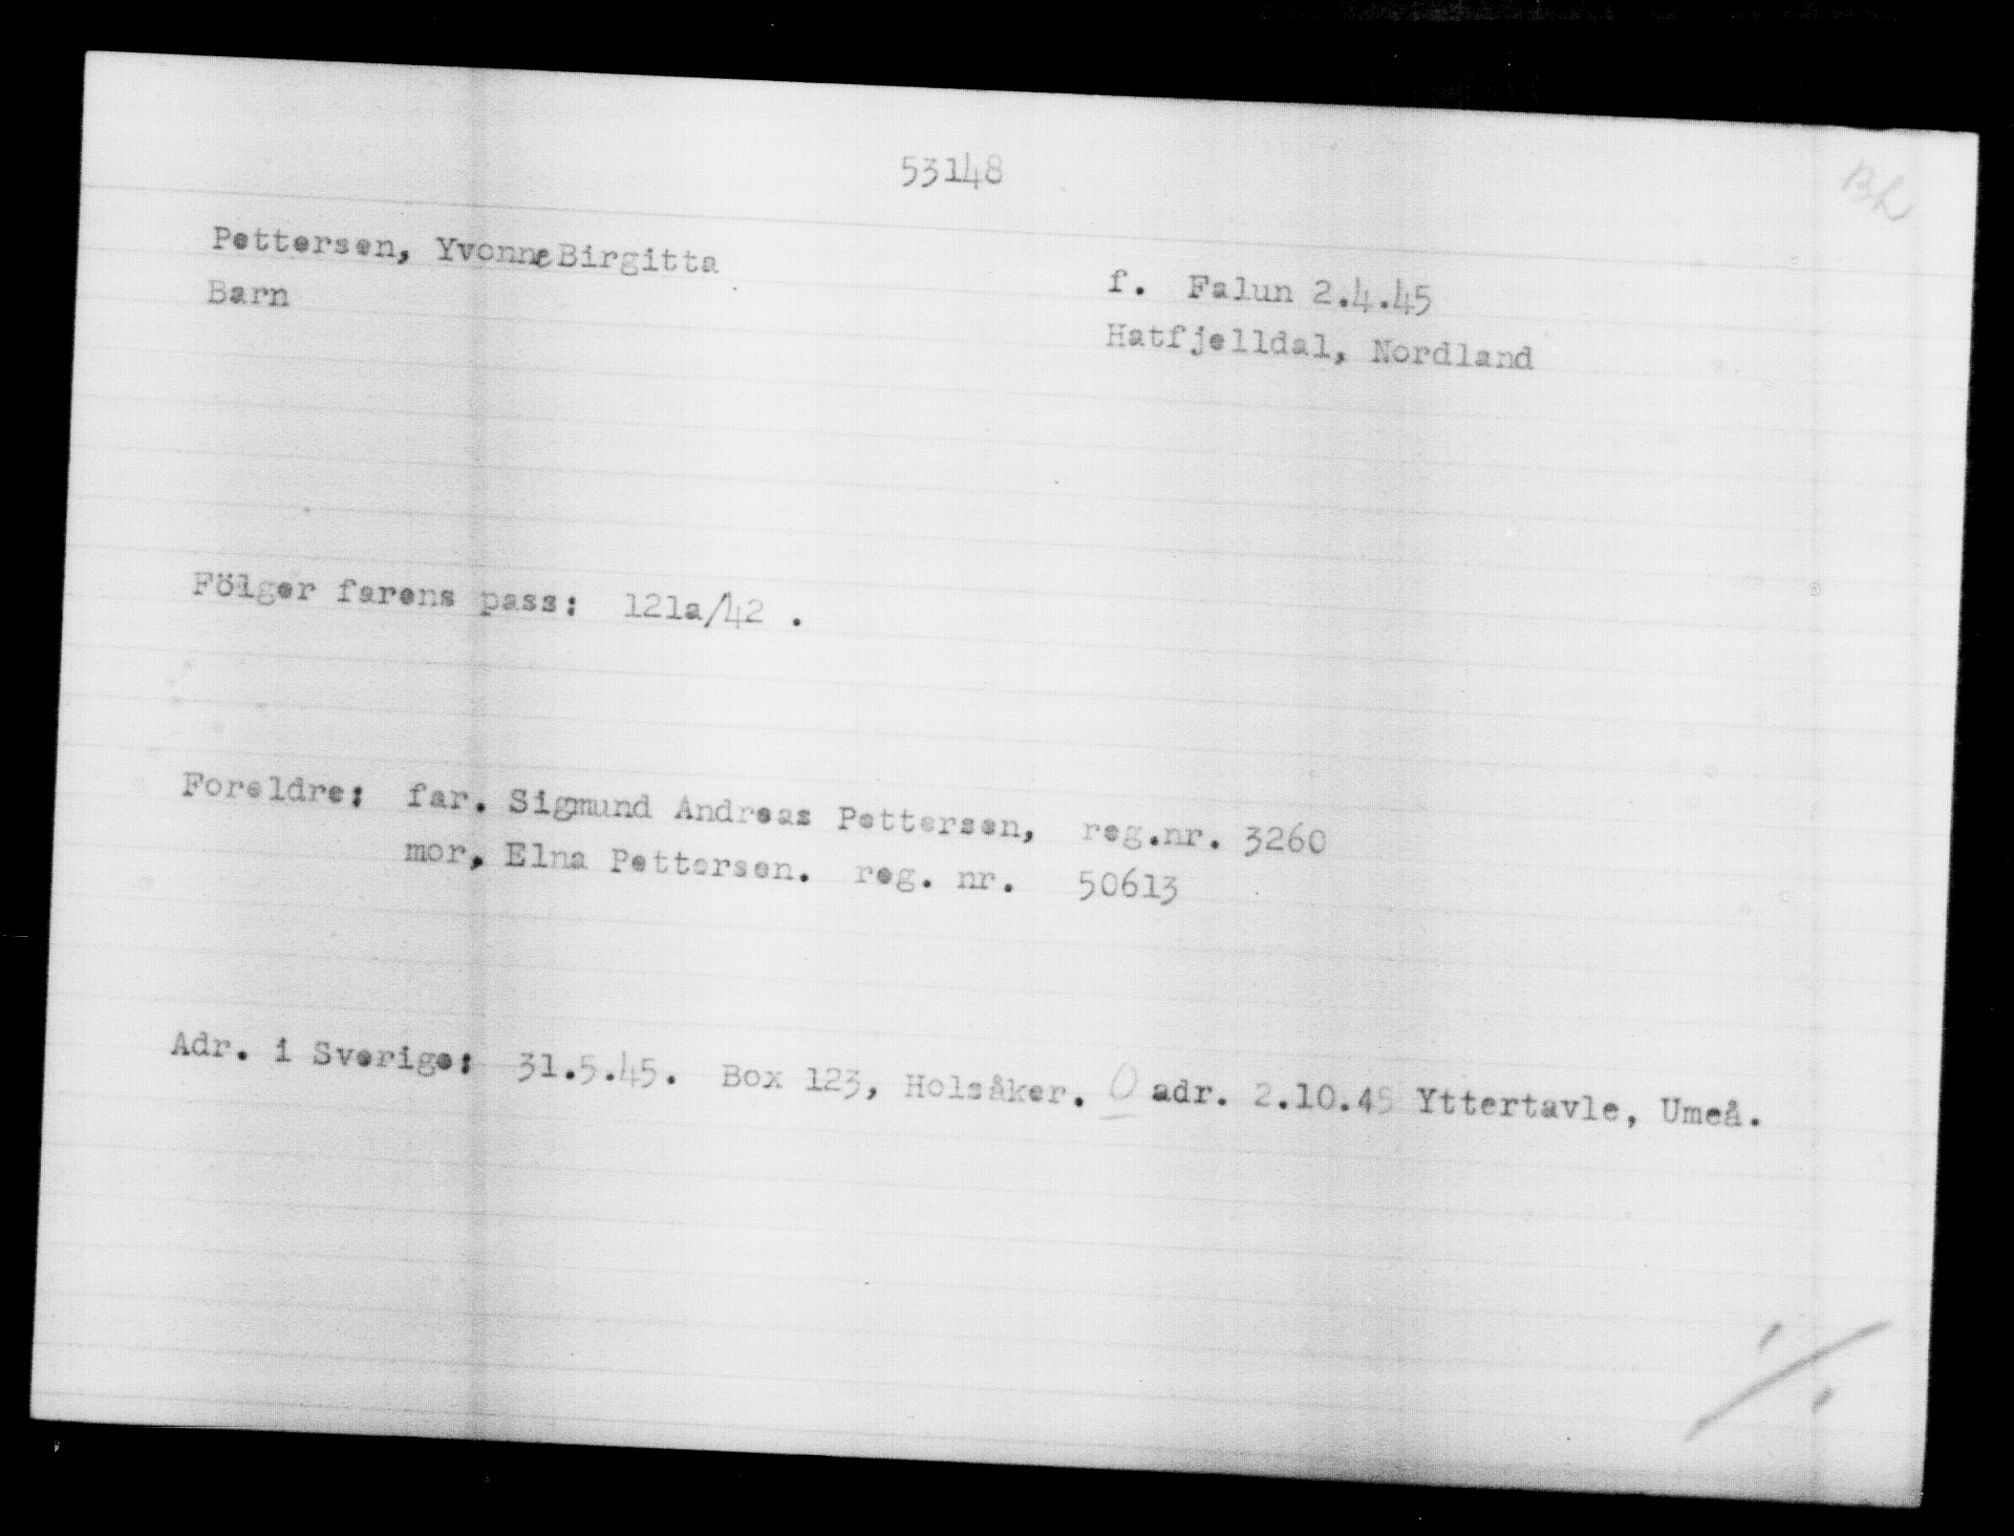 53148
Bh
Pettersen, Yvonne Birgitta
f. Falun 2.4.45
Barn
Hatfjelldal, Nordland
Fölger farens pass: 121a/42 .
Foreldre: far. Sigmund Andreas Pettersen, reg.nr. 3260
mor, Elna Pettersen. reg. nr. 50613
Adr. i Sverige: 31.5.45. Box 123, Holsåker. O adr. 2.10.45 Yttertavle, Umeå.